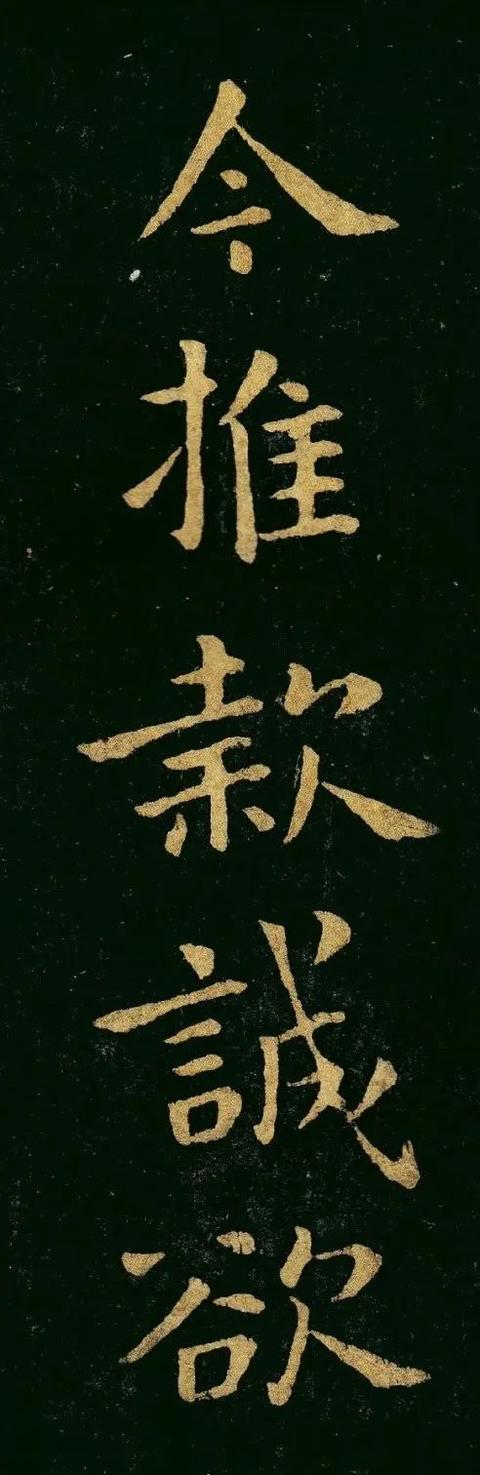 今推款誠欲